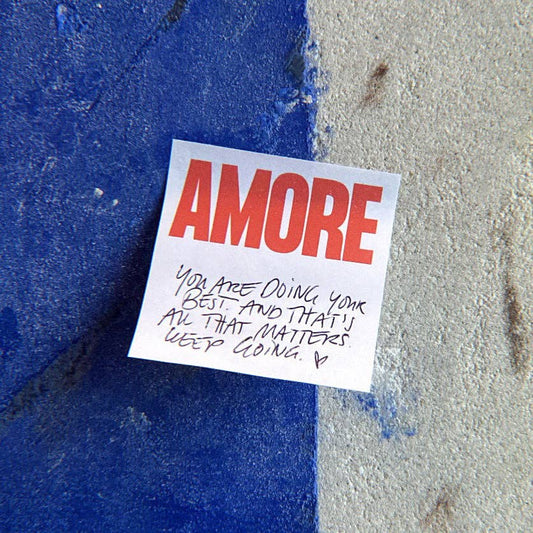 AMORE
YOU ARE DOING YOUR
BEST. AND THAT'S
ALL THAT MATTERS.
KEEP GOING. ♡